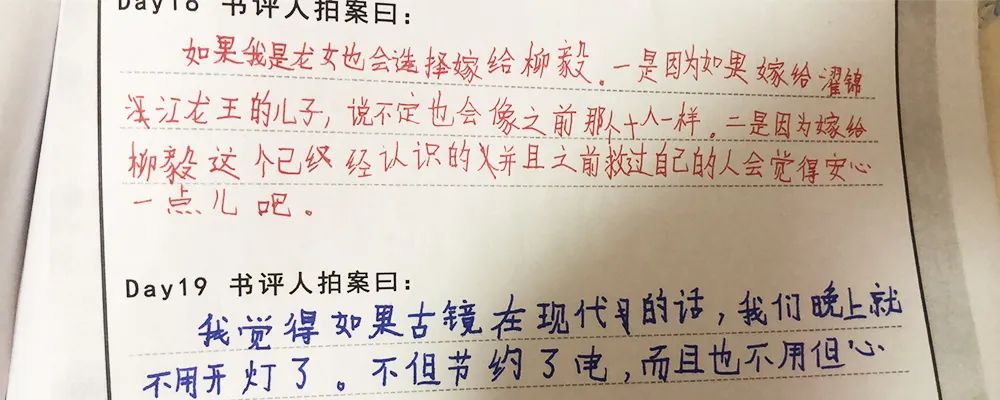 Day18 书评人拍案曰：
如果我是龙女也会选择嫁给柳毅。一是因为如果嫁给濯锦
江龙王的儿子，说不定也会像之前那个人一样。二是因为嫁给
柳毅这个已经认识的并且之前救过自己的人会觉得安心
一点儿吧。
Day19 书评人拍案曰：
我觉得如果古镜在现代的话，我们晚上就
不用开灯了。不但节约了电，而且也不用但心